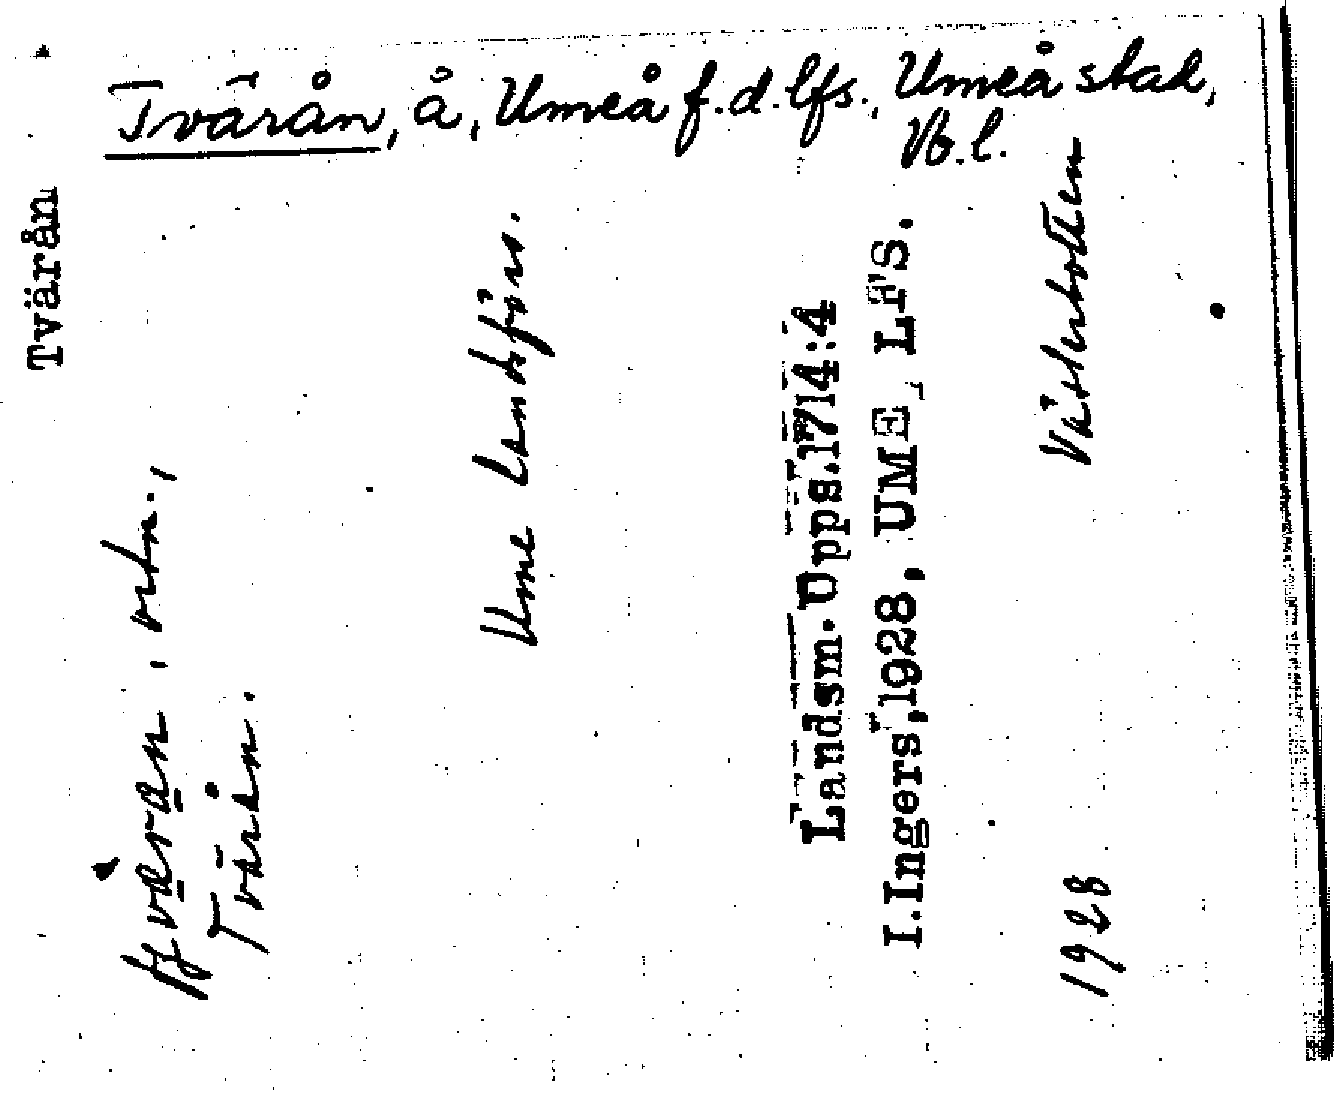 Tvärån, å, Umeå f.d. lfs., Umeå stad,
Vb.l.
Tvärån
Tvärån.
Ume Landsförs.
Landsm. Upps. 1714:4
I. Ingers, 1928, UME LFS.
Västerbotten
1928